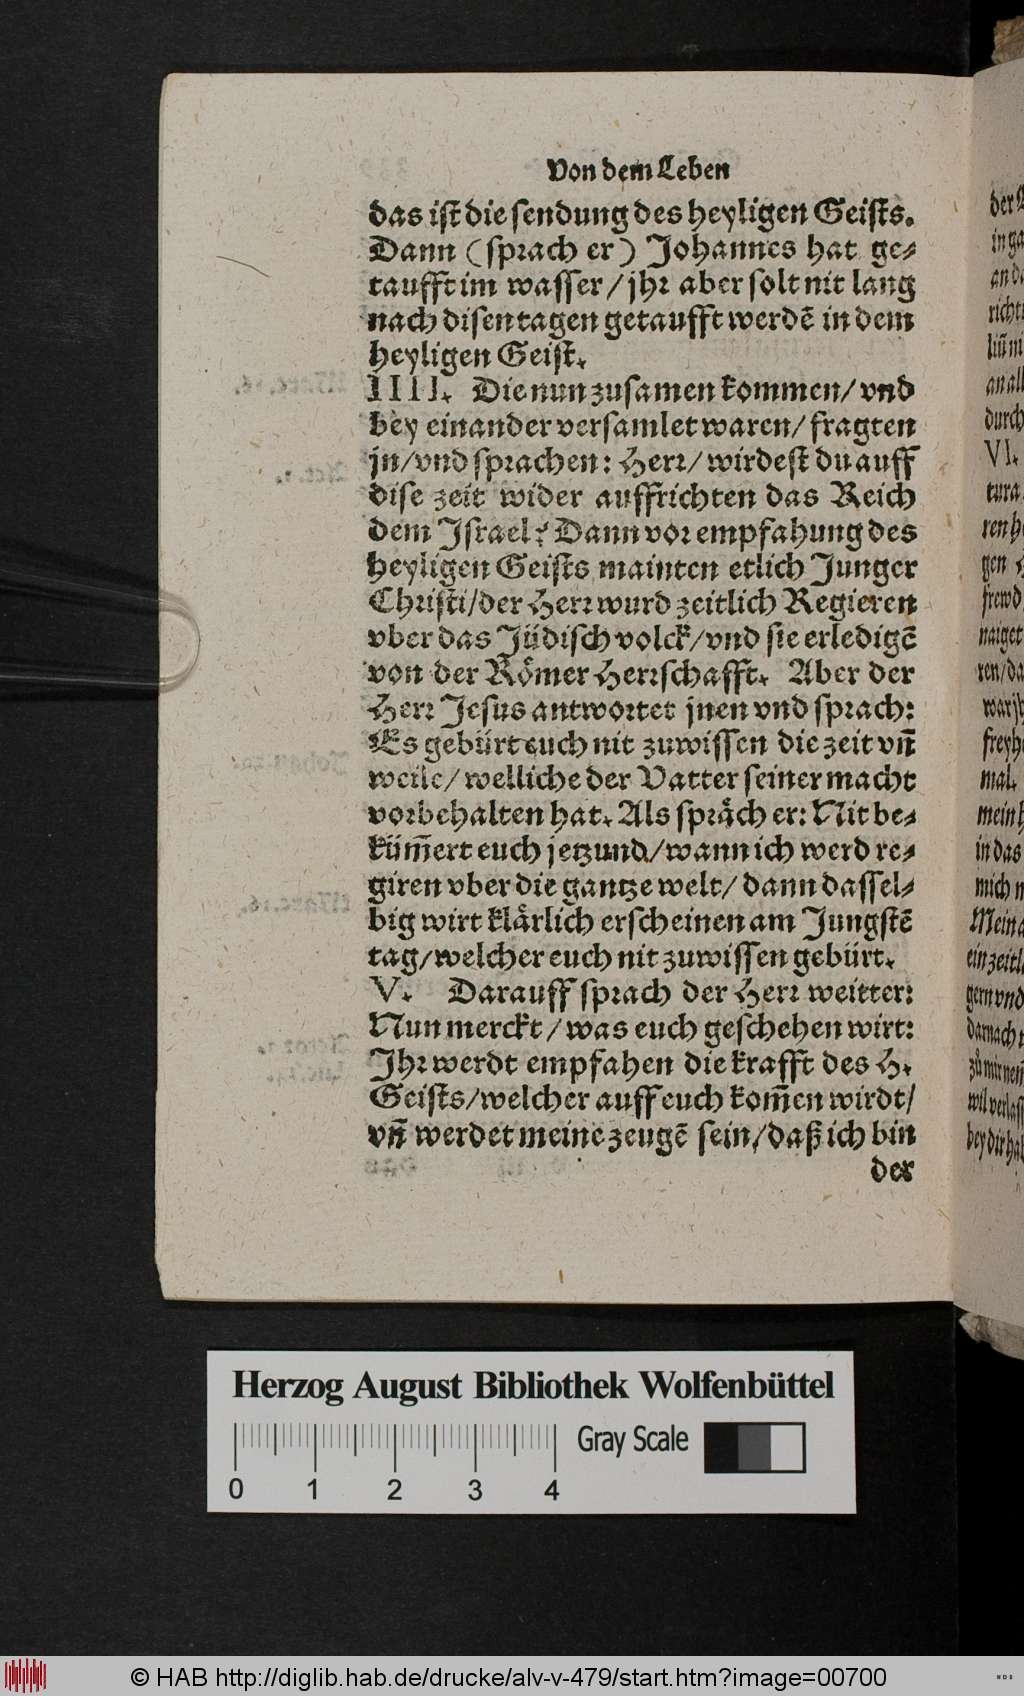 Von dem Leben
das ist die sendung des heyligen Geists.
Dann (sprach er) Johannes hat ge-
taufft im wasser / jhr aber solt nit lang
nach disen tagen getaufft werdẽ in dem
heyligen Geist.
IIII. Die nun zusamen kommen / vnd
bey einander versamlet waren / fragten
jn / vnd sprachen: Herr / wirdest du auff
dise zeit wider auffrichten das Reich
dem Israel? Dann vor empfahung des
heyligen Geists mainten etlich Junger
Christi / der Herr wurd zeitlich Regieren
vber das Jüdisch volck / vnd sie erledigẽ
von der Römer Herrschafft. Aber der
Herr Jesus antwortet jnen vnd sprach:
Es gebürt euch nit zuwissen die zeit vn̄
weile / welliche der Vatter seiner macht
vorbehalten hat. Als spräch er: Nit be-
küm̄ert euch jetzund / wann ich werd re-
giren vber die gantze welt / dann dassel-
big wirt klärlich erscheinen am Jungstẽ
tag / welcher euch nit zuwissen gebürt.
V. Darauff sprach der Herr weitter:
Nun merckt / was euch geschehen wirt:
Ihr werdt empfahen die krafft des H.
Geists / welcher auff euch kom̄en wirdt /
vn̄ werdet meine zeugẽ sein / daß ich bin
der
der
in ga
an de
richt
an all
durch
VI.
tura
ren h
gen
frewd
naiget
ren / da
war
freyh
mal.
mein h
in das
mich n
Mein a
ein zeitl
gern vnd
darnach
zů mir
wil verlass
bey dir hab
Herzog August Bibliothek Wolfenbüttel
Gray Scale
0 1 2 3 4
© HAB http://diglib.hab.de/drucke/alv-v-479/start.htm?image=00700